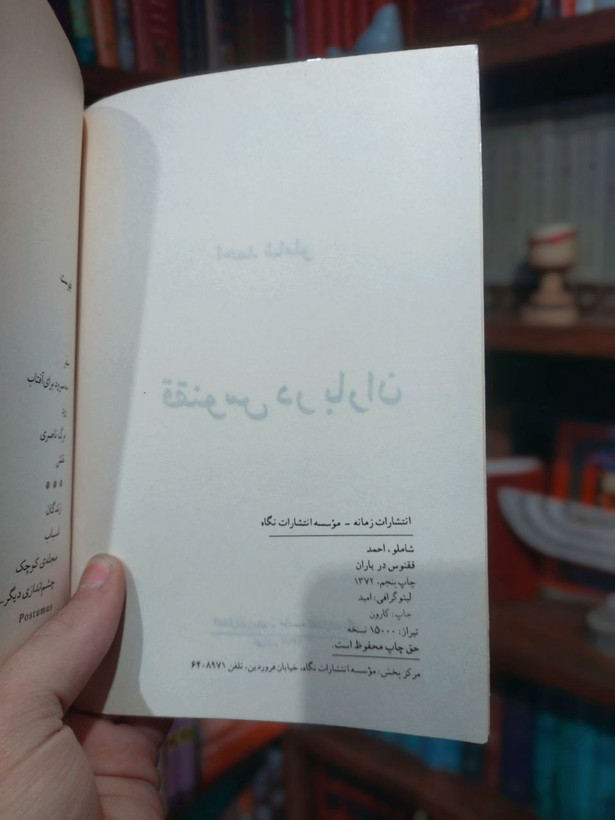 انتشارات زمانه - مؤسسه انتشارات نگاه
شاملو، احمد
ققنوس در باران
چاپ پنجم، ۱۳۷۲
لیتوگرافی: امید
چاپ: کارون
تیراژ: ۱۵۰۰۰ نسخه
حق چاپ محفوظ است.
مرکز پخش: مؤسسه انتشارات نگاه، خیابان فروردین، تلفن ۶۴۰۸۹۷۱
احمد شاملو
ققنوس در باران
برای آفتاب
مرگ ناصری
زندگان
اسباب
مجله‌ی کوچک
چشم‌اندازی دیگر
Postumus